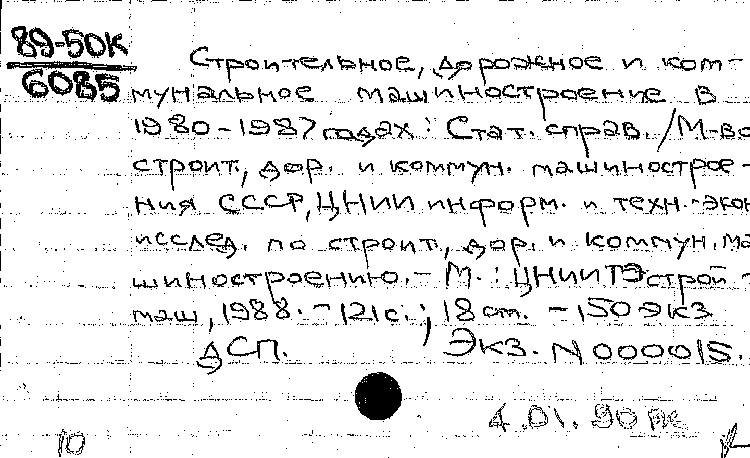 89-50К
6085
Строительное, дорожное и ком-
мунальное машиностроение в
1980-1987 годах : Стат. справ. / М-во
строит., дор. и коммун. машинострое-
ния СССР, ЦНИИ информ. и техн.-экон
исслед. по строит., дор. и коммун. ма
шиностроению. - М. : ЦНИИТЭстрой-
маш, 1988. - 121 с. ; 18 см. - 150 экз
ДСП. Экз. N 000015.
4.01.90
10